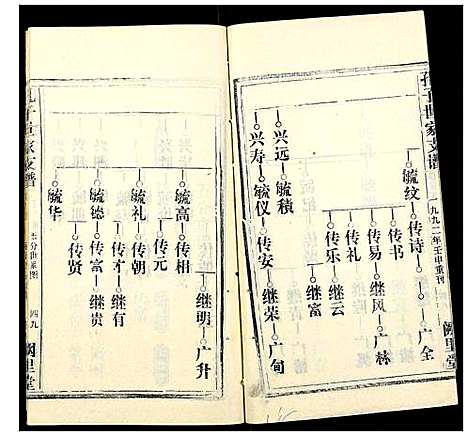 孔子世家支谱
一九九二年壬申重刊
阙里堂
毓纹 传诗 广全
传书
传易 继风 广林
传礼
传乐 继云
继富
兴远 毓積
兴寿 毓仪 传安 继荣 广甸
孔子世家支谱
五分世系图
四九
阙里堂
毓高 传相 继明 广升
传元
毓礼 传朝
传才 继有
毓德 传富 继贵
毓华 传贤